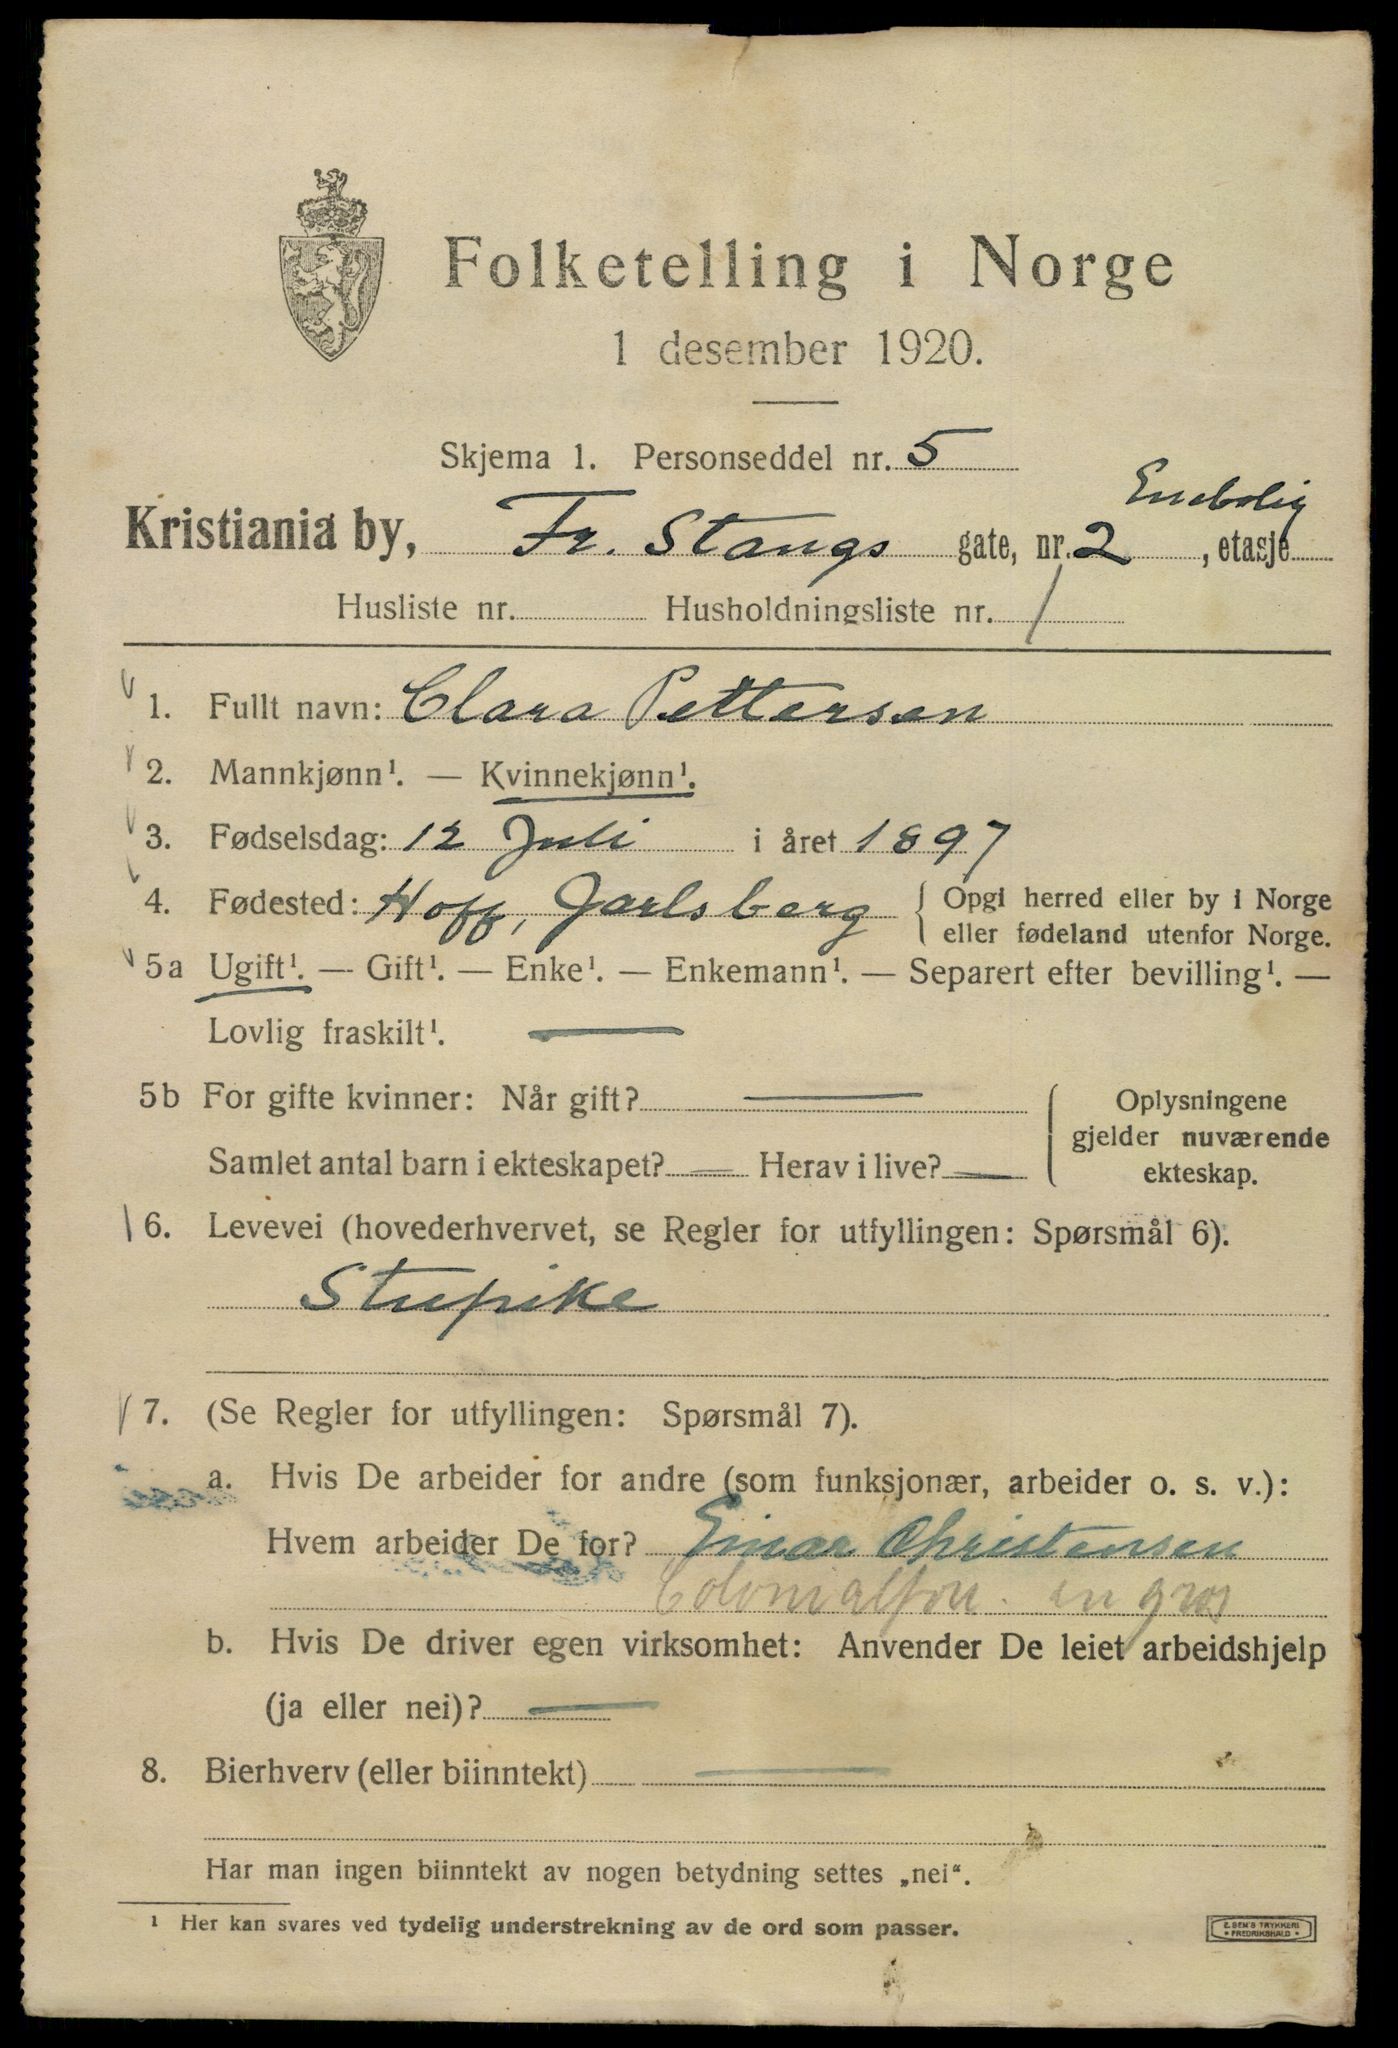 Folketelling i Norge
1 desember 1920.
Skjema 1. Personseddel nr. 5
Enebolig
Kristiania by, Fr. Stangs gate, nr. 2, etasje
Husliste nr. Husholdningsliste nr. 1
1. Fullt navn: Clara Pettersen
2. Mannkjønn¹. — Kvinnekjønn¹.
3. Fødselsdag: 12 Juli i året 1897
4. Fødested: Hoff, Jarlsberg { Opgi herred eller by i Norge
eller fødeland utenfor Norge.
5a Ugift¹. — Gift¹. — Enke¹. — Enkemann¹. — Separert efter bevilling¹. —
Lovlig fraskilt¹. —
5b For gifte kvinner: Når gift? —
Samlet antal barn i ekteskapet? — Herav i live? —
Oplysningene
gjelder nuværende
ekteskap.
6. Levevei (hovederhvervet, se Regler for utfyllingen: Spørsmål 6).
Stupike
7. (Se Regler for utfyllingen: Spørsmål 7).
a. Hvis De arbeider for andre (som funksjonær, arbeider o. s. v.):
Hvem arbeider De for? Einar Christensen
Colonialforr. en gros
b. Hvis De driver egen virksomhet: Anvender De leiet arbeidshjelp
(ja eller nei)? —
8. Bierhverv (eller biinntekt) —
Har man ingen biinntekt av nogen betydning settes „nei“.
¹ Her kan svares ved tydelig understrekning av de ord som passer.
E. SEM'S TRYKKERI
FREDRIKSHALD